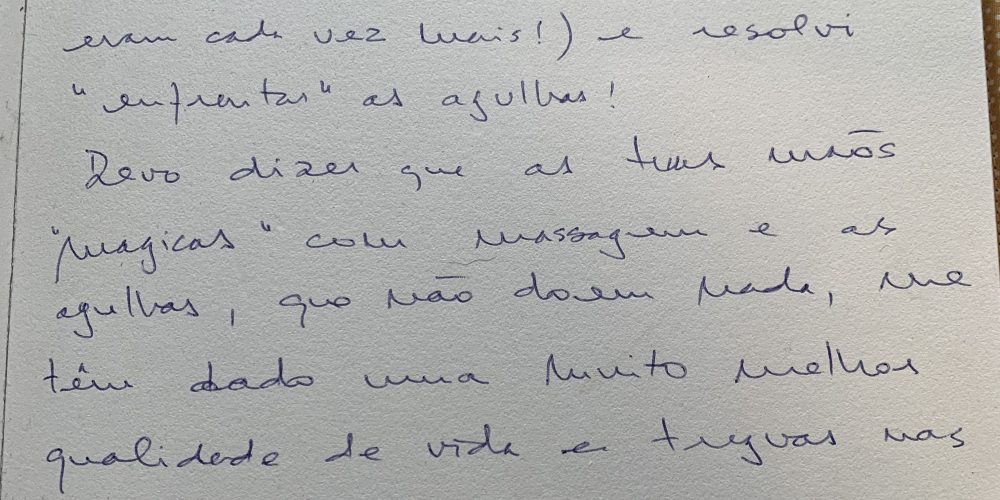 eram cada vez mais!) e resolvi
"enfrentar" as agulhas!
Devo dizer que as tuas mãos
"magicas" com massagem e as
agulhas, que não doem nada, me
têm dado uma muito melhor
qualidade de vida e treguas nas